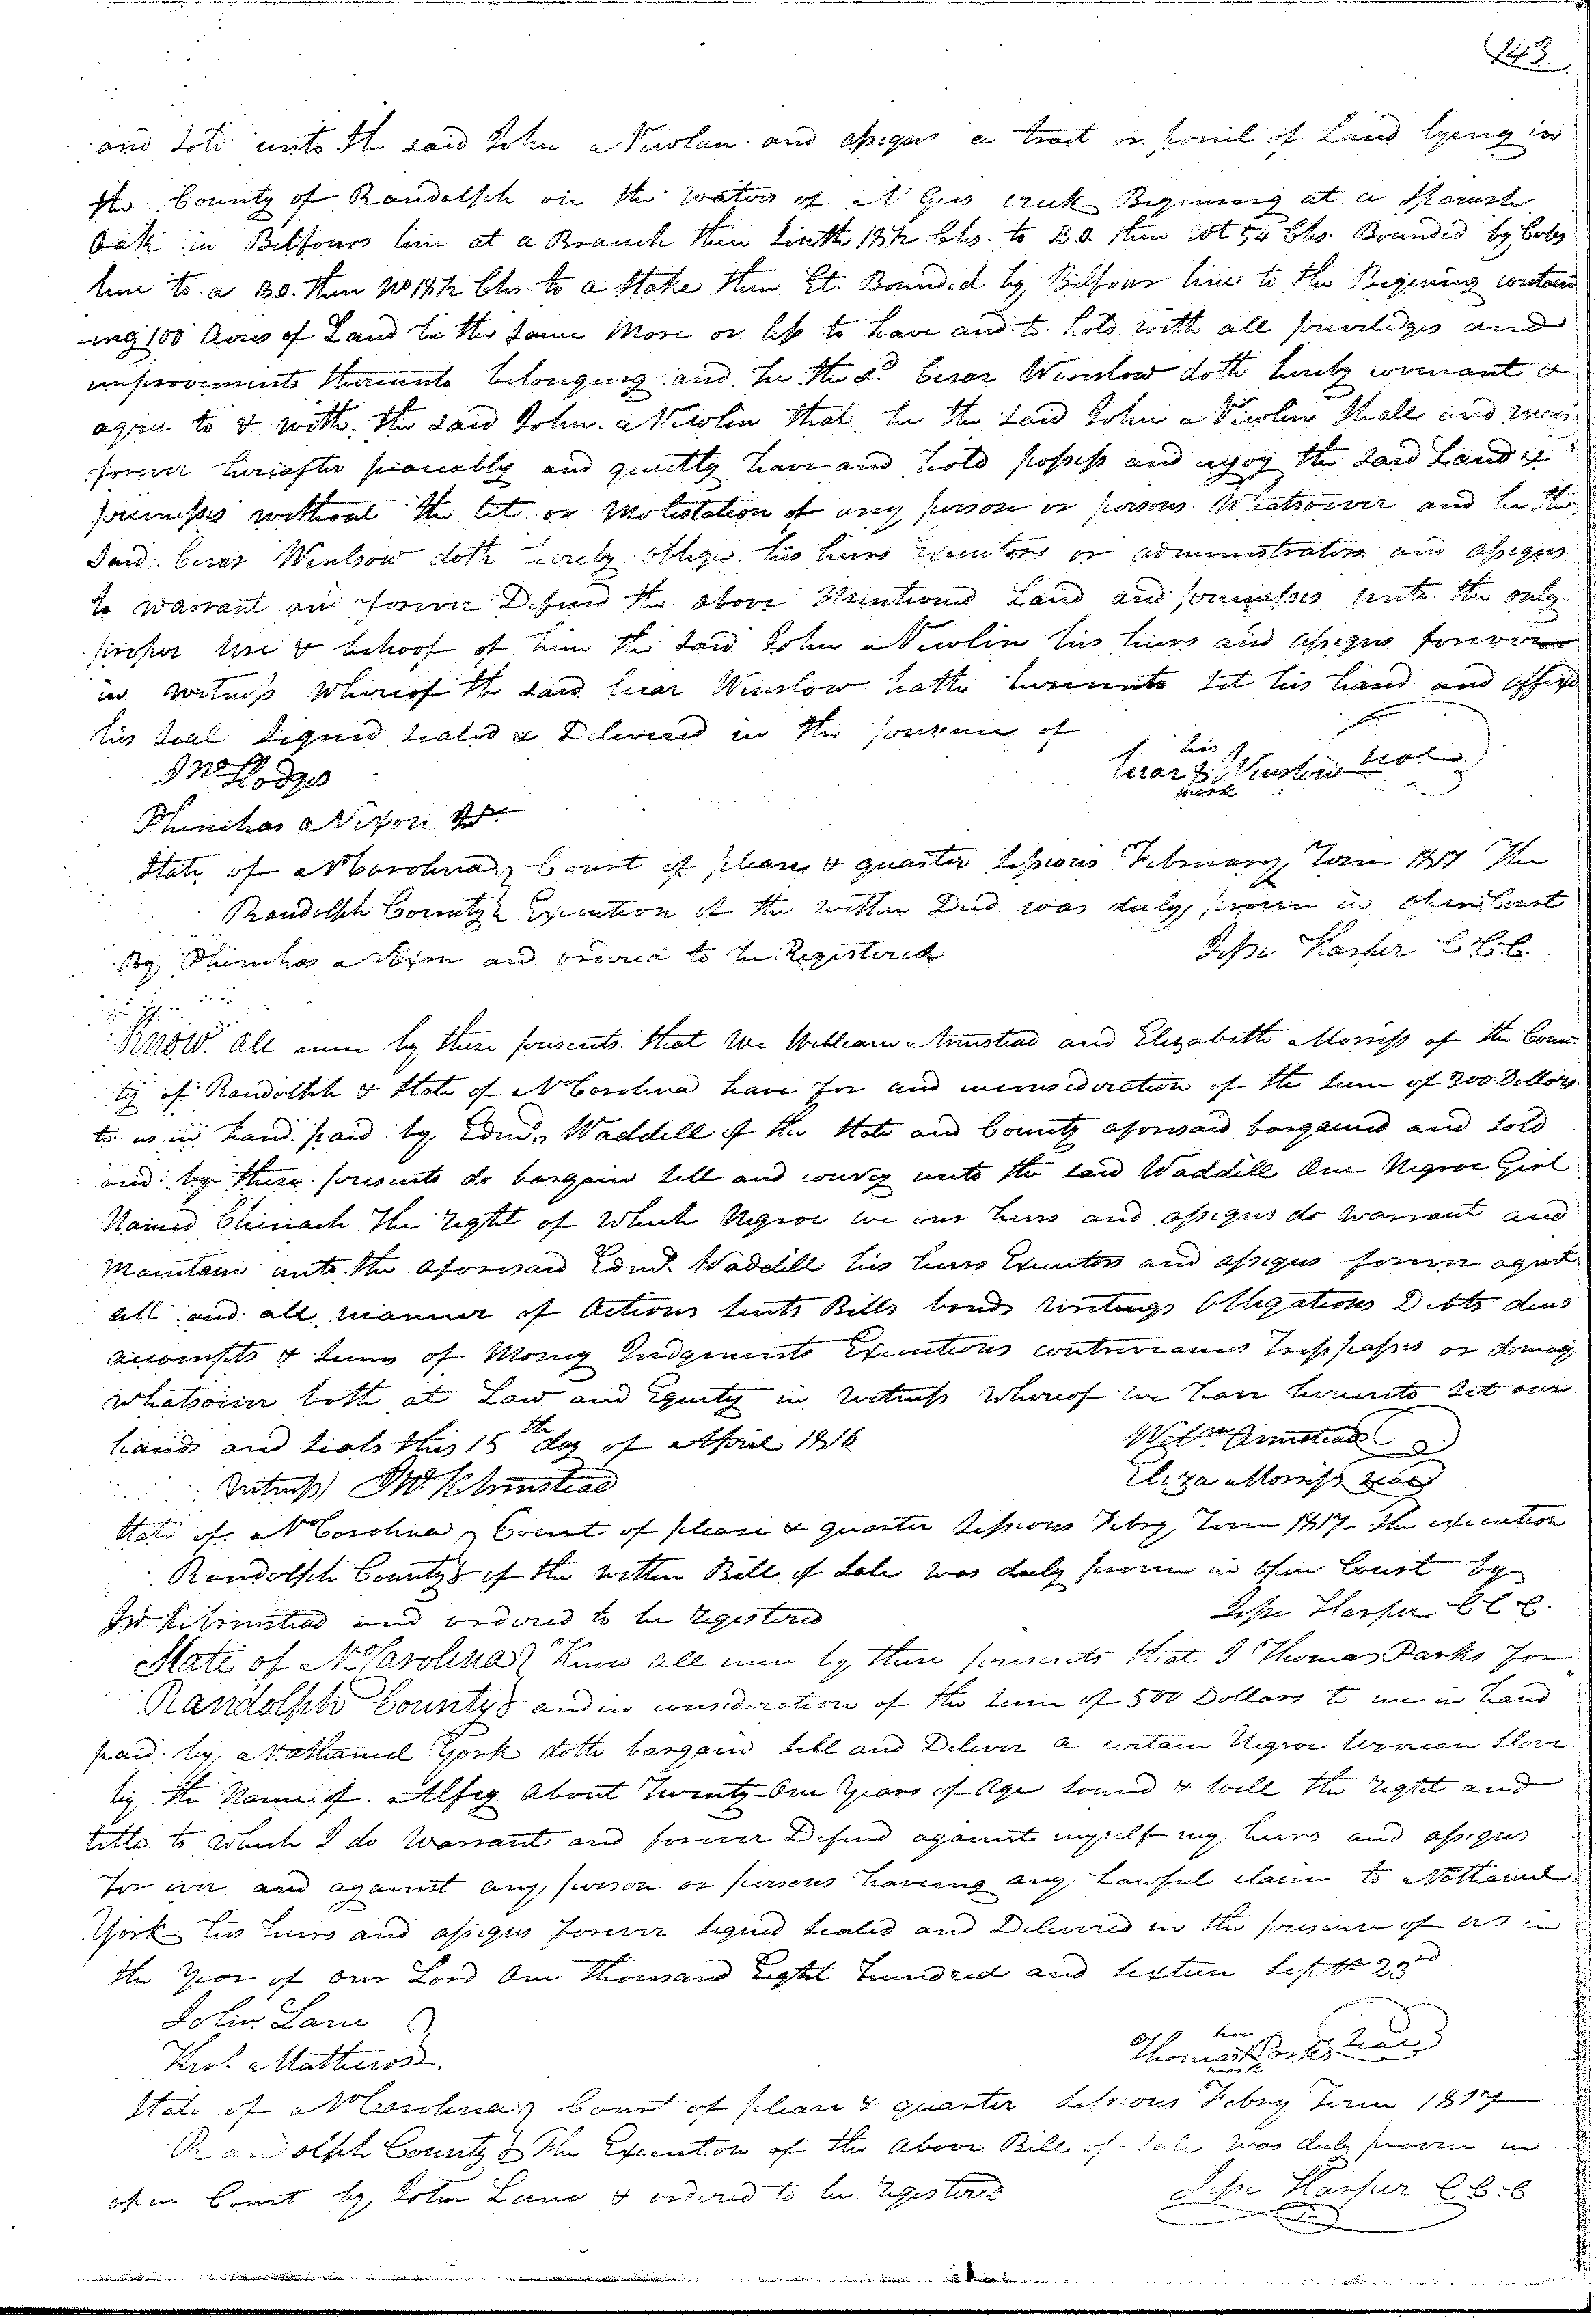 143
and sold unto the said John Newlin and assigns a tract or parcel of Land lying in
the County of Randolph on the waters of Creek Begining at a Spanish
Oak in Belfours line at a Branch then South 18½ Chs. to B.O. then Wt 54 Chs. Bounded by
line to a B.O. then No 18½ Chs to a Stake then Et. Bounded by Bilfour line to the Begining contain
ing 100 Acres of Land be the same More or less to have and to hold with all priviledges and
improvements thereunto belonging and he the sd. Cesar Winslow doth hereby warrant &
agree to & with the said John Newlin that he the said John Newlin Shall and may
forever hereafter peaceably and quietly have and hold possess and injoy the said Land &
premises without the let or Molistation of any person or persons Whatsoever and he the
Said Cesar Winslow doth hereby oblige his heirs executors or administrators and assigns
to warrant and forever Defend the above Mentioned Land and premises unto the only
proper use & behoof of him the said John Newlin his heirs and assigns forever
in witness whereof the said Cesar Winslow hath hereunto set his hand and affixd
his seal signed sealed & Delivered in the presence of
Jno Hodges
his
Cesar Winslow seal
mark
Phinehas Nixon
State of N Carolina } Court of pleas & quarter sessions February Term 1817 The
Randolph County } Execution of the within Deed was duly proven in open Court
By Phinehas Nixon and ordered to be Registered
Jesse Harper C.C.C.
Know all men by these presents that We William Armistead and Elizabeth Morriss of the Coun
ty of Randolph & State of N Carolina have for and in consideration of the sum of 300 Dollars
to us in hand paid by Edmd. Waddill of the State and County aforesaid bargained and sold
and by these presents do bargain sell and convey unto the said Waddill One Negroe Girl
Named The right of which Negroe we our heirs and assigns do warrant and
Maintain unto the aforesaid Edmd. Waddill his heirs Executors and assigns forever agast
all and all manner of Actions suits Bills bonds writings Obligations Debts dues
accompts & sums of Money Judgments Executions contrivances Tresspasses or damag
whatsoever both at Law and Equity in witness whereof we have hereunto set our
hands and seals this 15th day of April 1816
Willm Armistead
Witness Jno K Armistead
Eliza Morriss seal
State of N Carolina } Court of pleas & quarter Sessions Febry Term 1817 The execution
Randolph County } of the within Bill of Sale was duly proven in open Court by
Jno K Armistead and ordered to be registered
Jesse Harper C C C.
State of N Carolina } Know all men by these presents that I Thomas Parks for
Randolph County } and in consideration of the sum of 500 Dollars to me in hand
paid by Nathaniel York doth bargain sell and Deliver a certain Negroe woman slave
by the Name of Alsey About Twenty One Years of Age sound & well the right and
title to which I do Warrant and forever Defend against myself my heirs and assigns
for ever and against any person or persons having any Lawful claim to Nathaniel
York his heirs and assigns forever signed sealed and Delivered in the presence of us in
the Year of our Lord One thousand eight hundred and sixteen Septr 23rd
John Lane
his
Thomas Parks seal
mark
State of N Carolina } Court of pleas & quarter sessions Febry Term 1817
Randolph County } The Execution of the above Bill of sale was duly proven in
open Court by John Lane & ordered to be registered
Jesse Harper C.C.C